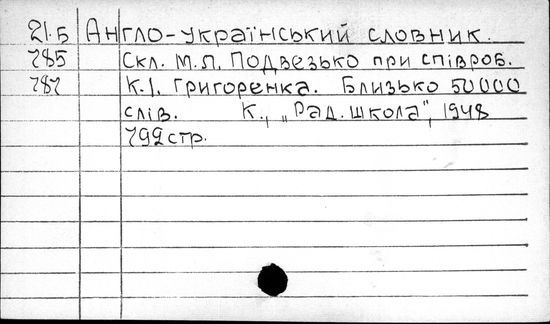 21.Б Англо-український словник.
785 Скл. М.Л. Подвезько при співроб.
787 К.І. Григоренка. Близько 50000
слів. К., „Рад. школа", 1948
792 стр.